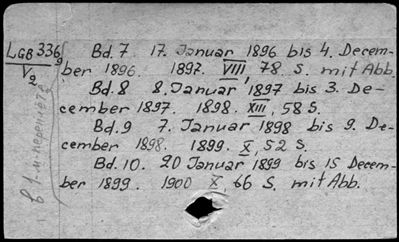 LGB 336g
V2
Bd. 7 17. Januar 1896 bis 4. Decem-
ber 1896. 1897. VIII, 78 S. mit Abb.
Bd. 8 8. Januar 1897 bis 3. De-
cember 1897. 1898. XIII, 58 S.
Bd. 9 7. Januar 1898 bis 9. De-
cember 1898. 1899. X, 52 S.
Bd. 10. 20 Januar 1899 bis 15 Decem-
ber 1899. 1900 X, 66 S. mit Abb.
в 1-м переплёте